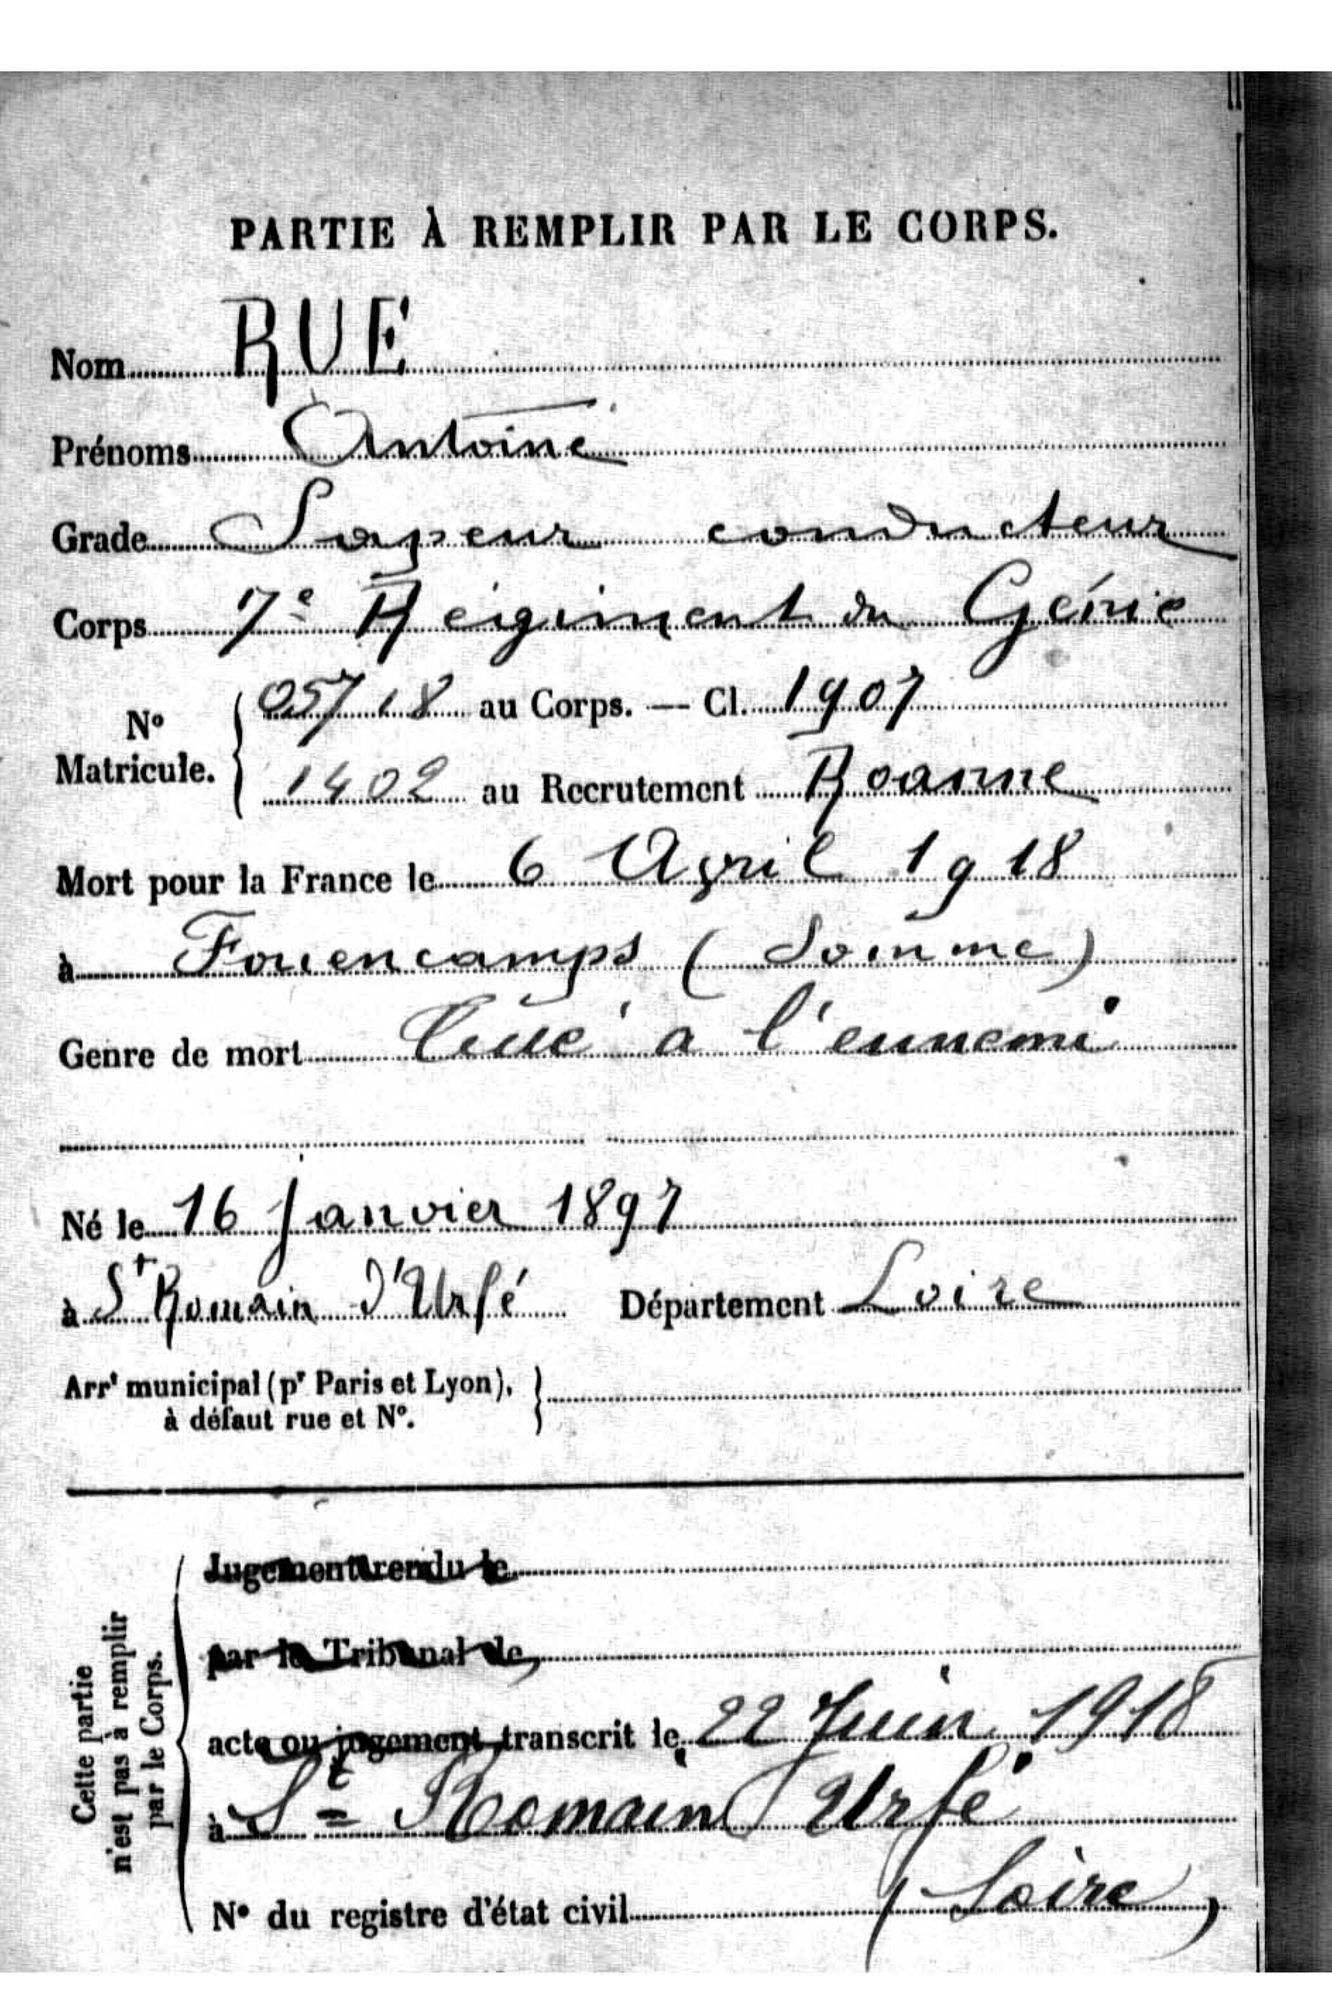 PARTIE À REMPLIR PAR LE CORPS.
Nom RUE
Prénoms Antoine
Grade Sapeur conducteur
Corps 7e Régiment du Génie
No Maticule. 05718 au Corps. — Cl. 1907
1402 au Recrutement Roanne
Mort pour la France le 6 Avril 1918
à Fouencamps (Somme)
Genre de mort Tué à l'ennemi
Né le 16 Janvier 1897
à St Romain d'Urfé Département Loire
Arrt municipal (pr Paris et Lyon), à défaut rue et No.
Cette partie n'est pas à remplir par le Corps.
Jugement rendu le
par le Tribunal de
acte ou jugement transcrit le 22 Juin 1918
à St Romain d'Urfé
(Loire)
No du registre d'état civil